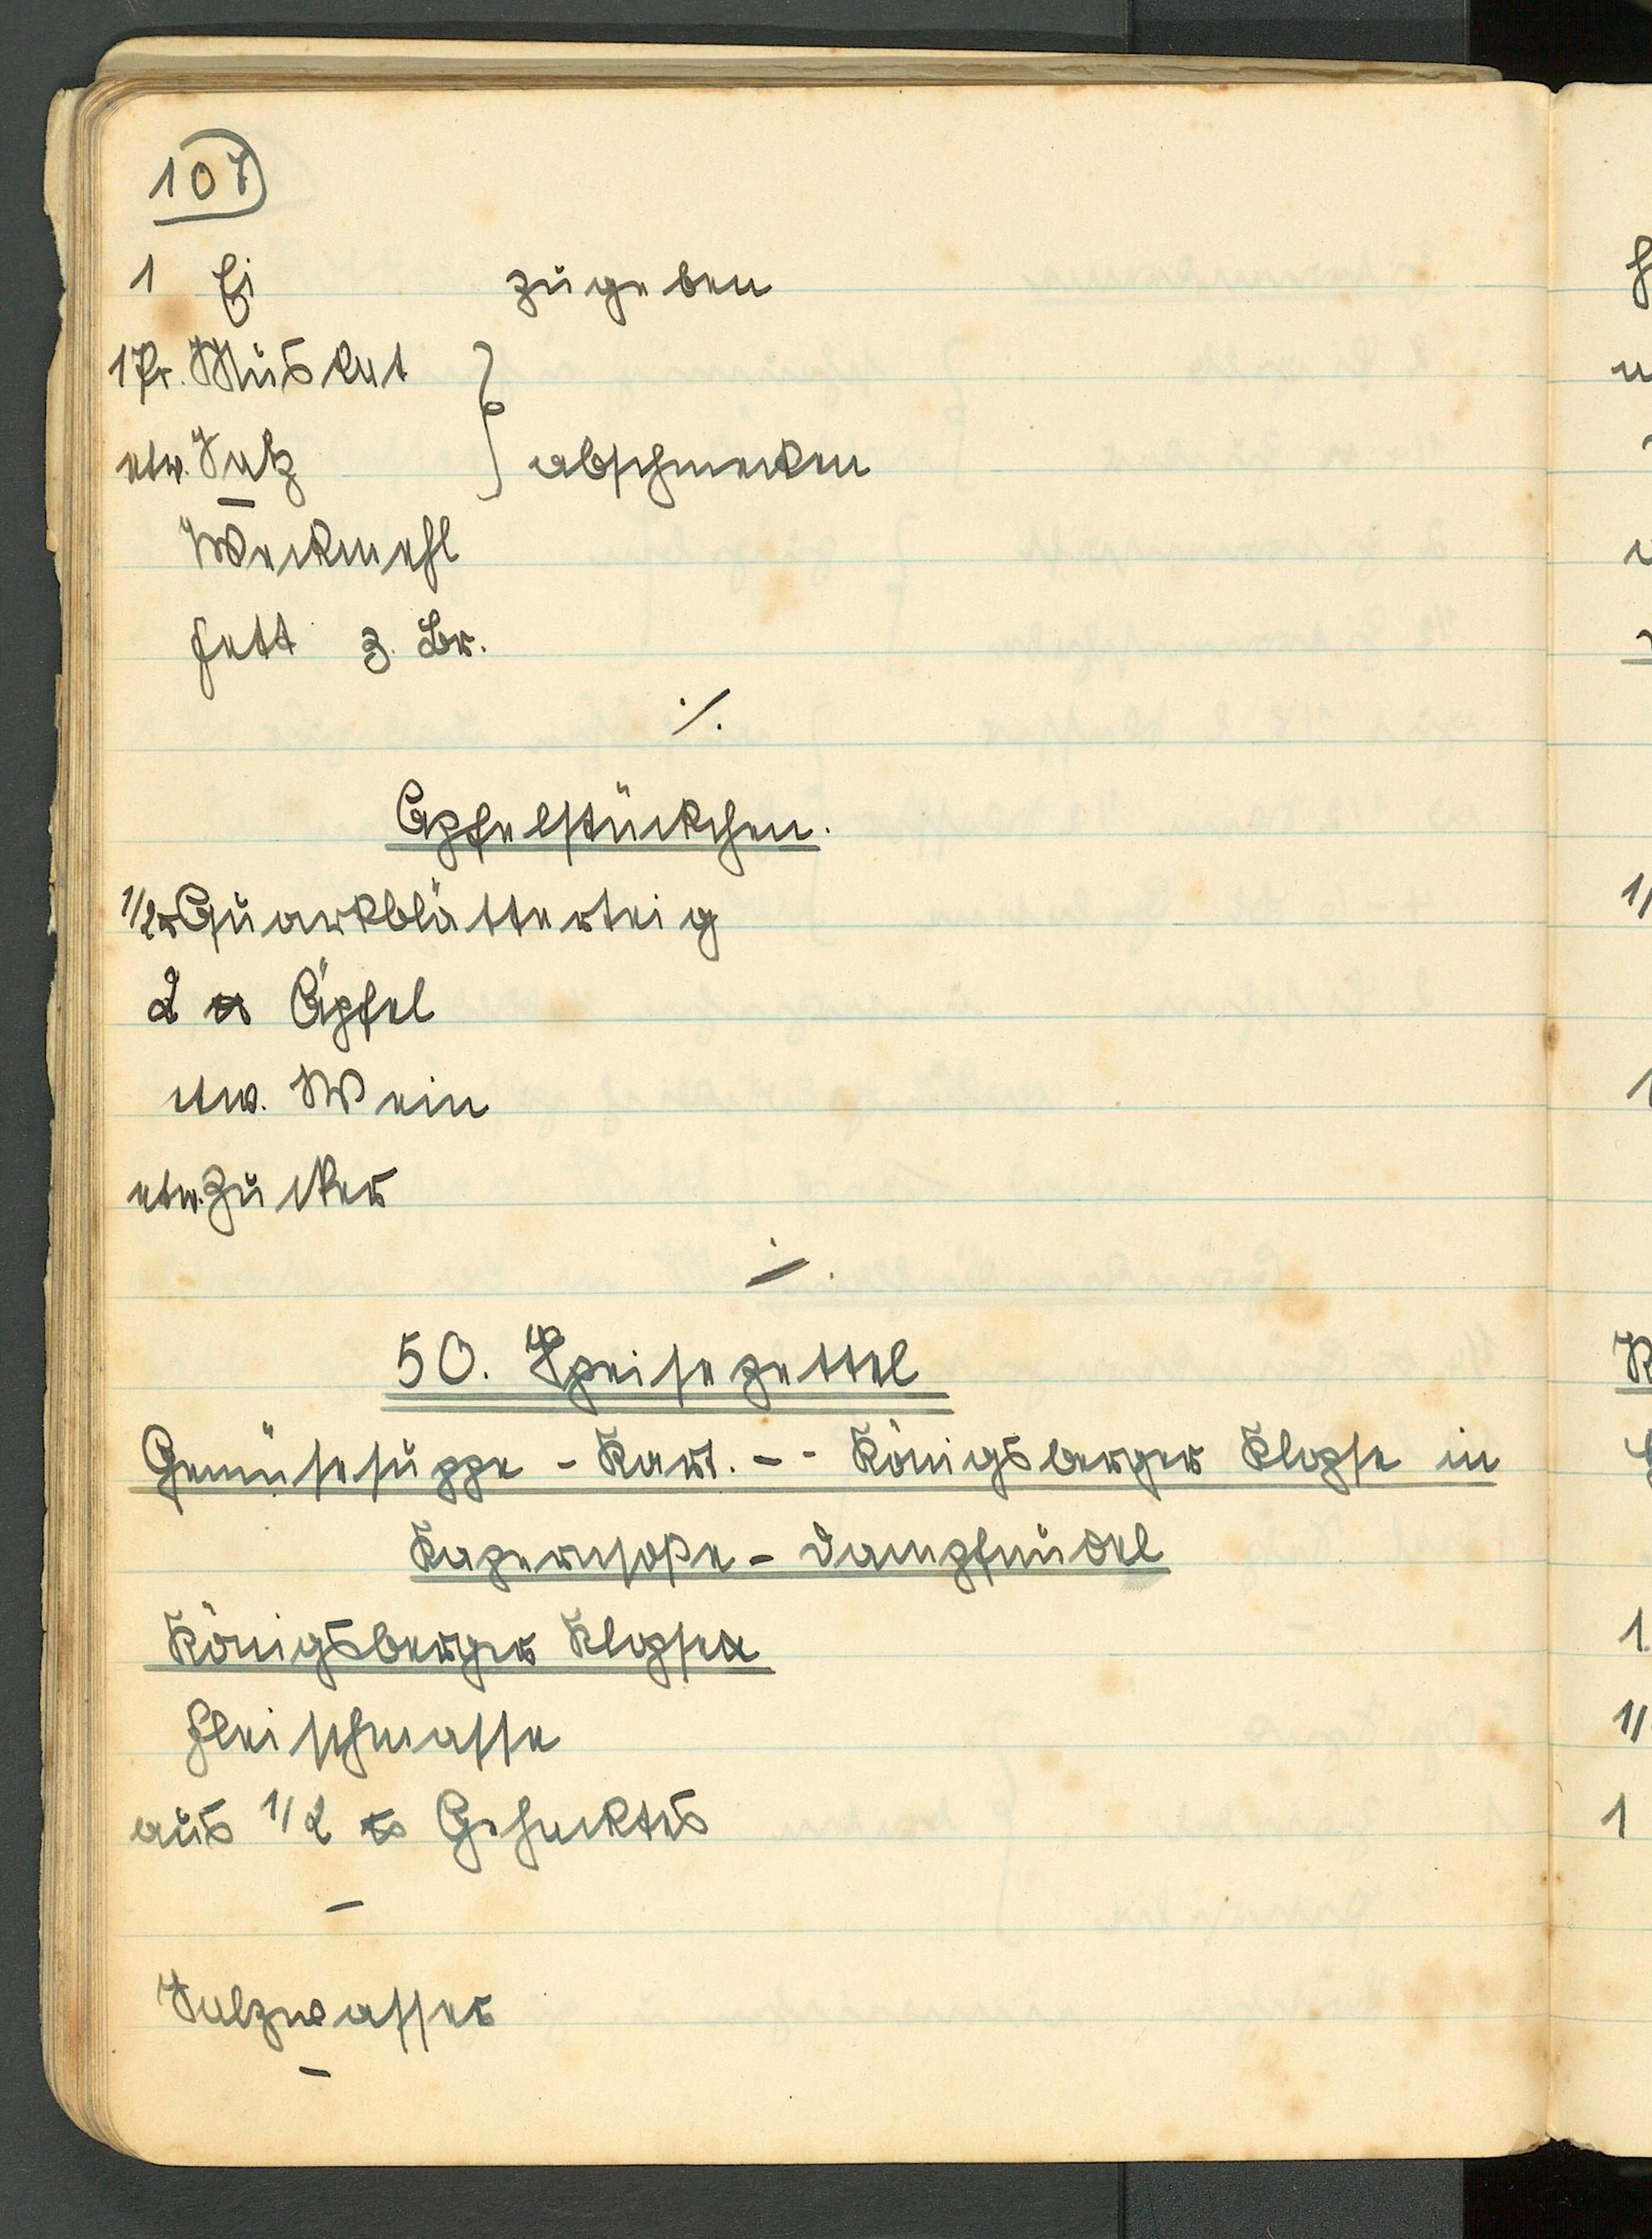 107
1 Ei zugeben
1 Pr. Muskat
etw. Salz } abschmecken
Weckmehl
Fett z. Br.
./.
Apfelstückchen.
1/2 ℔ Quarkblätterteig
2 ℔ Äpfel
etw. Wein
etw. Zucker
./.
50. Speisezettel
Gemüsesuppe - Kart. - - Königsberger Klopse in
Kapernsoße - Dampfnudel
Königsberger Klopse
Fleischmasse
aus 1/2 ℔ Gehacktes
–
Salzwasser
–